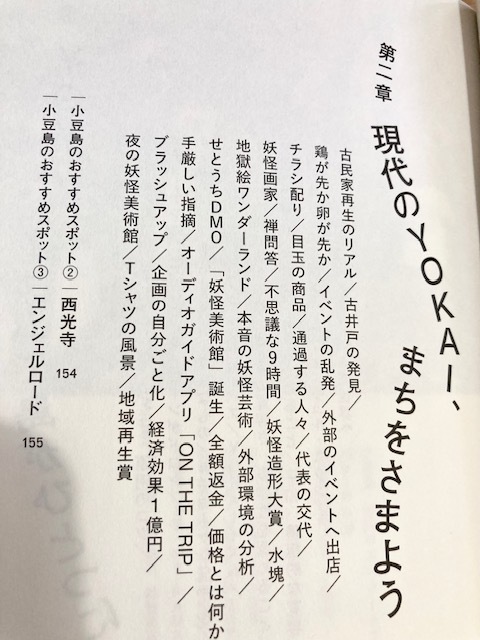 第二章
現代のYOKAI、
まちをさまよう
古民家再生のリアル/古井戸の発見/
鶏が先か卵が先か/イベントの乱発/外部のイベントへ出店/
チラシ配り/目玉の商品/通過する人々/代表の交代/
妖怪画家/禅問答/不思議な9時間/妖怪造形大賞/水塊/
地獄絵ワンダーランド/本音の妖怪芸術/外部環境の分析/
せとうちDMO/「妖怪美術館」誕生/全額返金/価格とは何か
手厳しい指摘/オーディオガイドアプリ「ON THE TRIP」/
ブラッシュアップ/企画の自分ごと化/経済効果1億円/
夜の妖怪美術館/Tシャツの風景/地域再生賞
―小豆島のおすすめスポット②―西光寺 154
―小豆島のおすすめスポット③―エンジェルロード 155